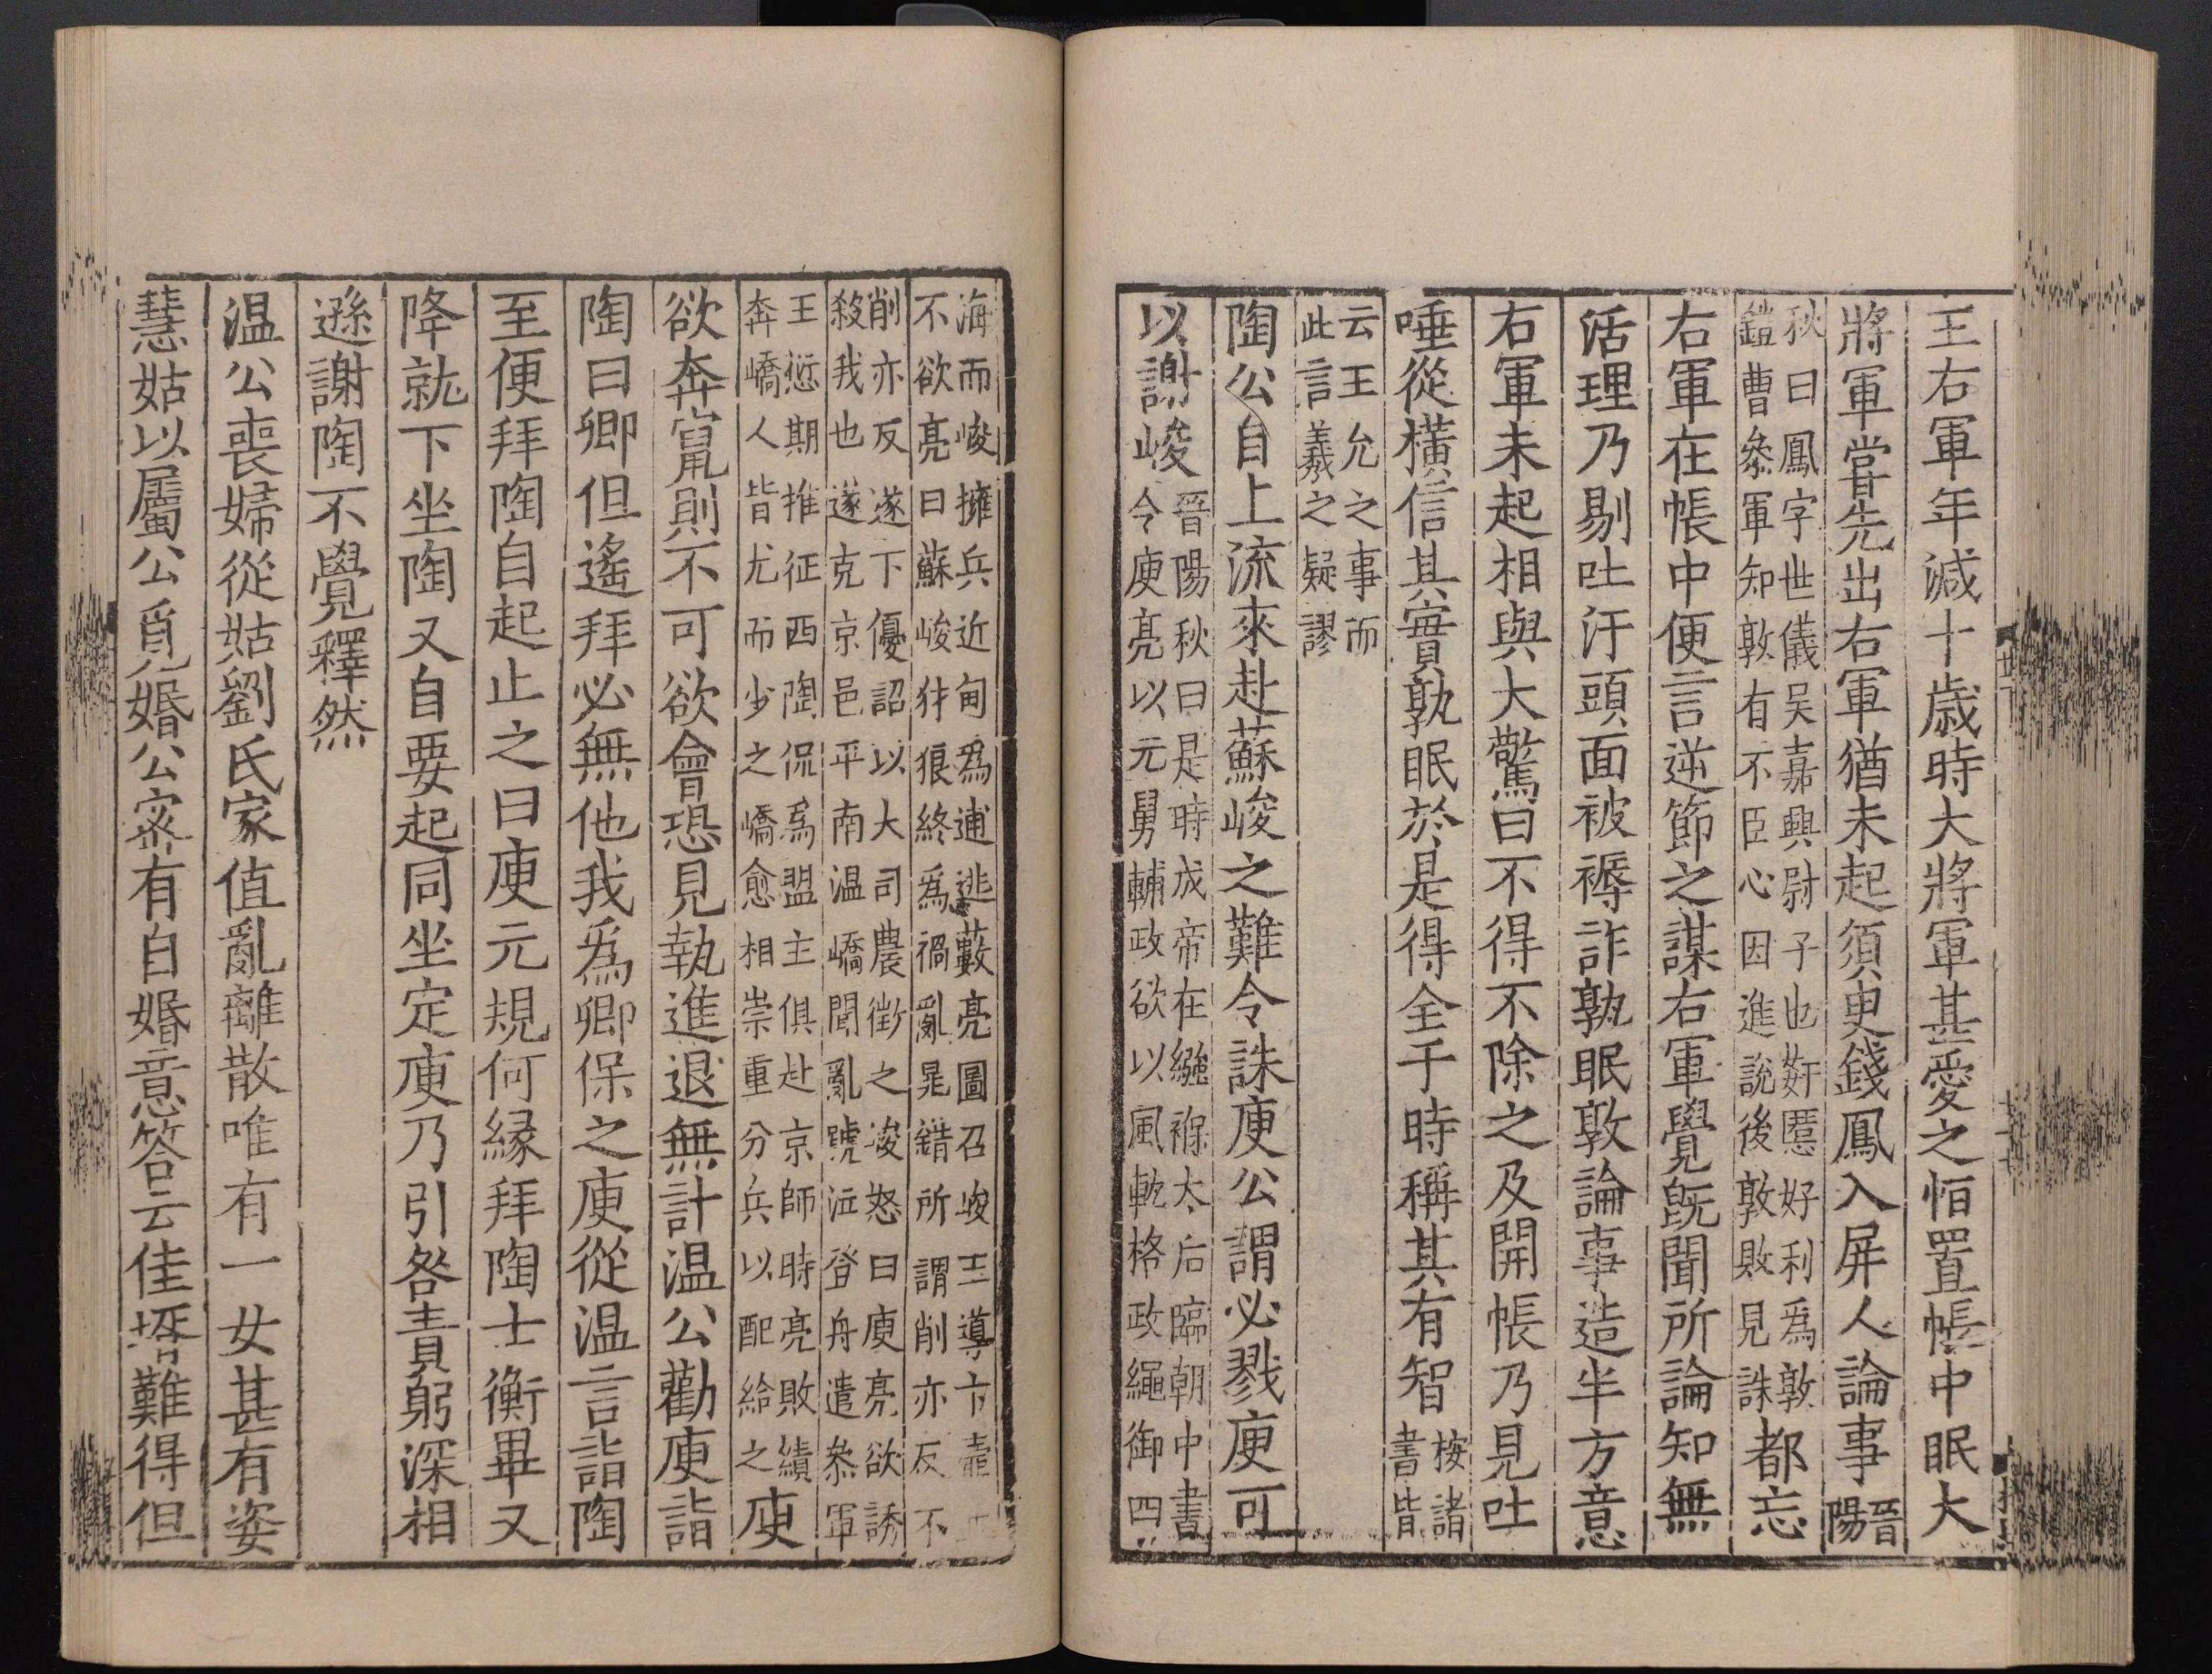 王右軍年減十歲時大將軍甚愛之恒置帳中眠大
將軍嘗先出右軍猶未起須臾錢鳳入屏人論事晉陽
秋曰鳳字世儀吳嘉興尉子也姧慝好利爲敦
鎧曹叅軍知敦有不臣心因進說後敦敗見誅都忘
右軍在帳中便言逆節之謀右軍覺旣聞所論知無
活理乃剔吐汙頭面被褥詐孰眠敦論事造半方意
右軍未起相與大驚曰不得不除之及開帳乃見吐
唾從橫信其實孰眠於是得全于時稱其有智按諸
書皆
云王允之事而
此言羲之疑謬
陶公自上流來赴蘇峻之難令誅庾公謂必戮庾可
以謝峻晉陽秋曰是時成帝在繦褓太后臨朝中書
令庾亮以元舅輔政欲以風軌格政繩御四
海而峻擁兵近甸爲逋逃藪亮圖召峻王導卞壼
不欲亮曰蘇峻豺狼終爲禍亂晁錯所謂削亦反不
削亦反遂下優詔以大司農徵之峻怒曰庾亮欲誘
殺我也遂克京邑平南温嶠聞亂號泣登舟遣叅軍
王愆期推征西陶侃爲盟主俱赴京師時亮敗績
奔嶠人皆尤而少之嶠愈相崇重分兵以配給之庾
欲奔竄則不可欲會恐見執進退無計温公勸庾詣
陶曰卿但遙拜必無他我爲卿保之庾從温言詣陶
至便拜陶自起止之曰庾元規何縁拜陶士衡畢又
降就下坐陶又自要起同坐定庾乃引咎責躬深相
遜謝陶不覺釋然
温公喪婦從姑劉氏家值亂離散唯有一女甚有姿
慧姑以屬公覓婚公宻有自婚意答云佳壻難得但